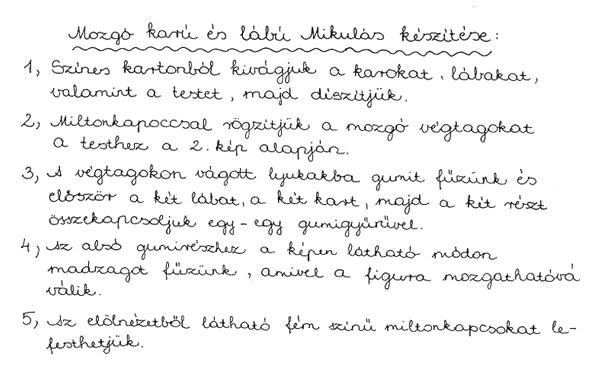 Mozgó karú és lábú Mikulás készítése:
1, Színes kartonból kivágjuk a karokat, lábakat,
valamint a testet, majd díszítjük.
2, Miltonkapoccsal rögzítjük a mozgó végtagokat
a testhez a 2. kép alapján.
3, A végtagokon vágott lyukakba gumit fűzünk és
először a két lábat, a két kart, majd a két részt
összekapcsoljuk egy-egy gumigyűrűvel.
4, Az alsó gumirészhez a képen látható módon
madzagot fűzünk, amivel a figura mozgathatóvá
válik.
5, Az elölnézetből látható fém színű miltonkapcsokat le-
festhetjük.